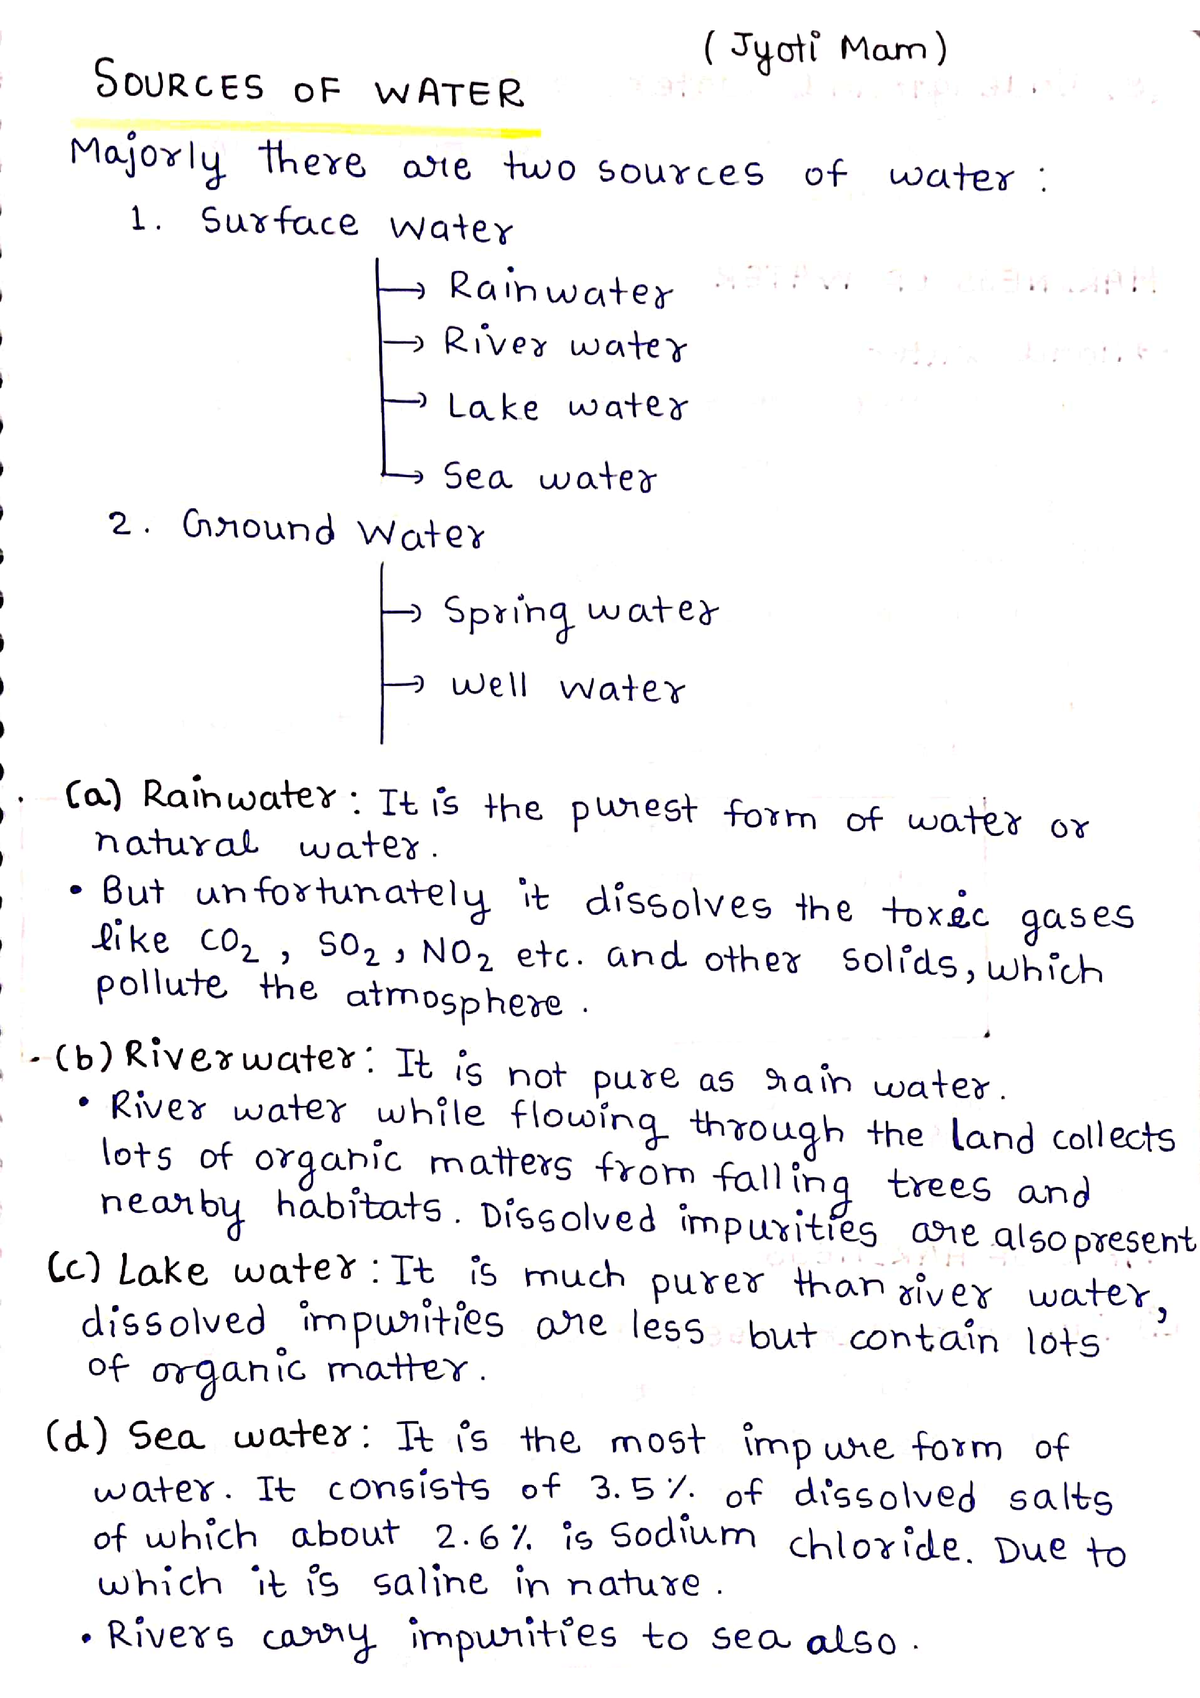 ( Jyoti Mam )
SOURCES OF WATER
Majorly there are two sources of water :
1. Surface Water
→ Rainwater
→ River water
→ Lake water
→ Sea water
2. Ground Water
→ Spring water
→ Well Water
(a) Rainwater : It is the purest form of water or
natural water.
• But unfortunately it dissolves the toxic gases
like CO₂ , SO₂ , NO₂ etc. and other solids, which
pollute the atmosphere .
(b) River water : It is not pure as rain water.
• River water while flowing through the land collects
lots of organic matters from falling trees and
nearby habitats. Dissolved impurities are also present
(c) Lake water : It is much purer than river water,
dissolved impurities are less but contain lots
of organic matter.
(d) Sea water : It is the most impure form of
water. It consists of 3.5 %. of dissolved salts
of which about 2.6 % is Sodium chloride. Due to
which it is saline in nature .
• Rivers carry impurities to sea also .